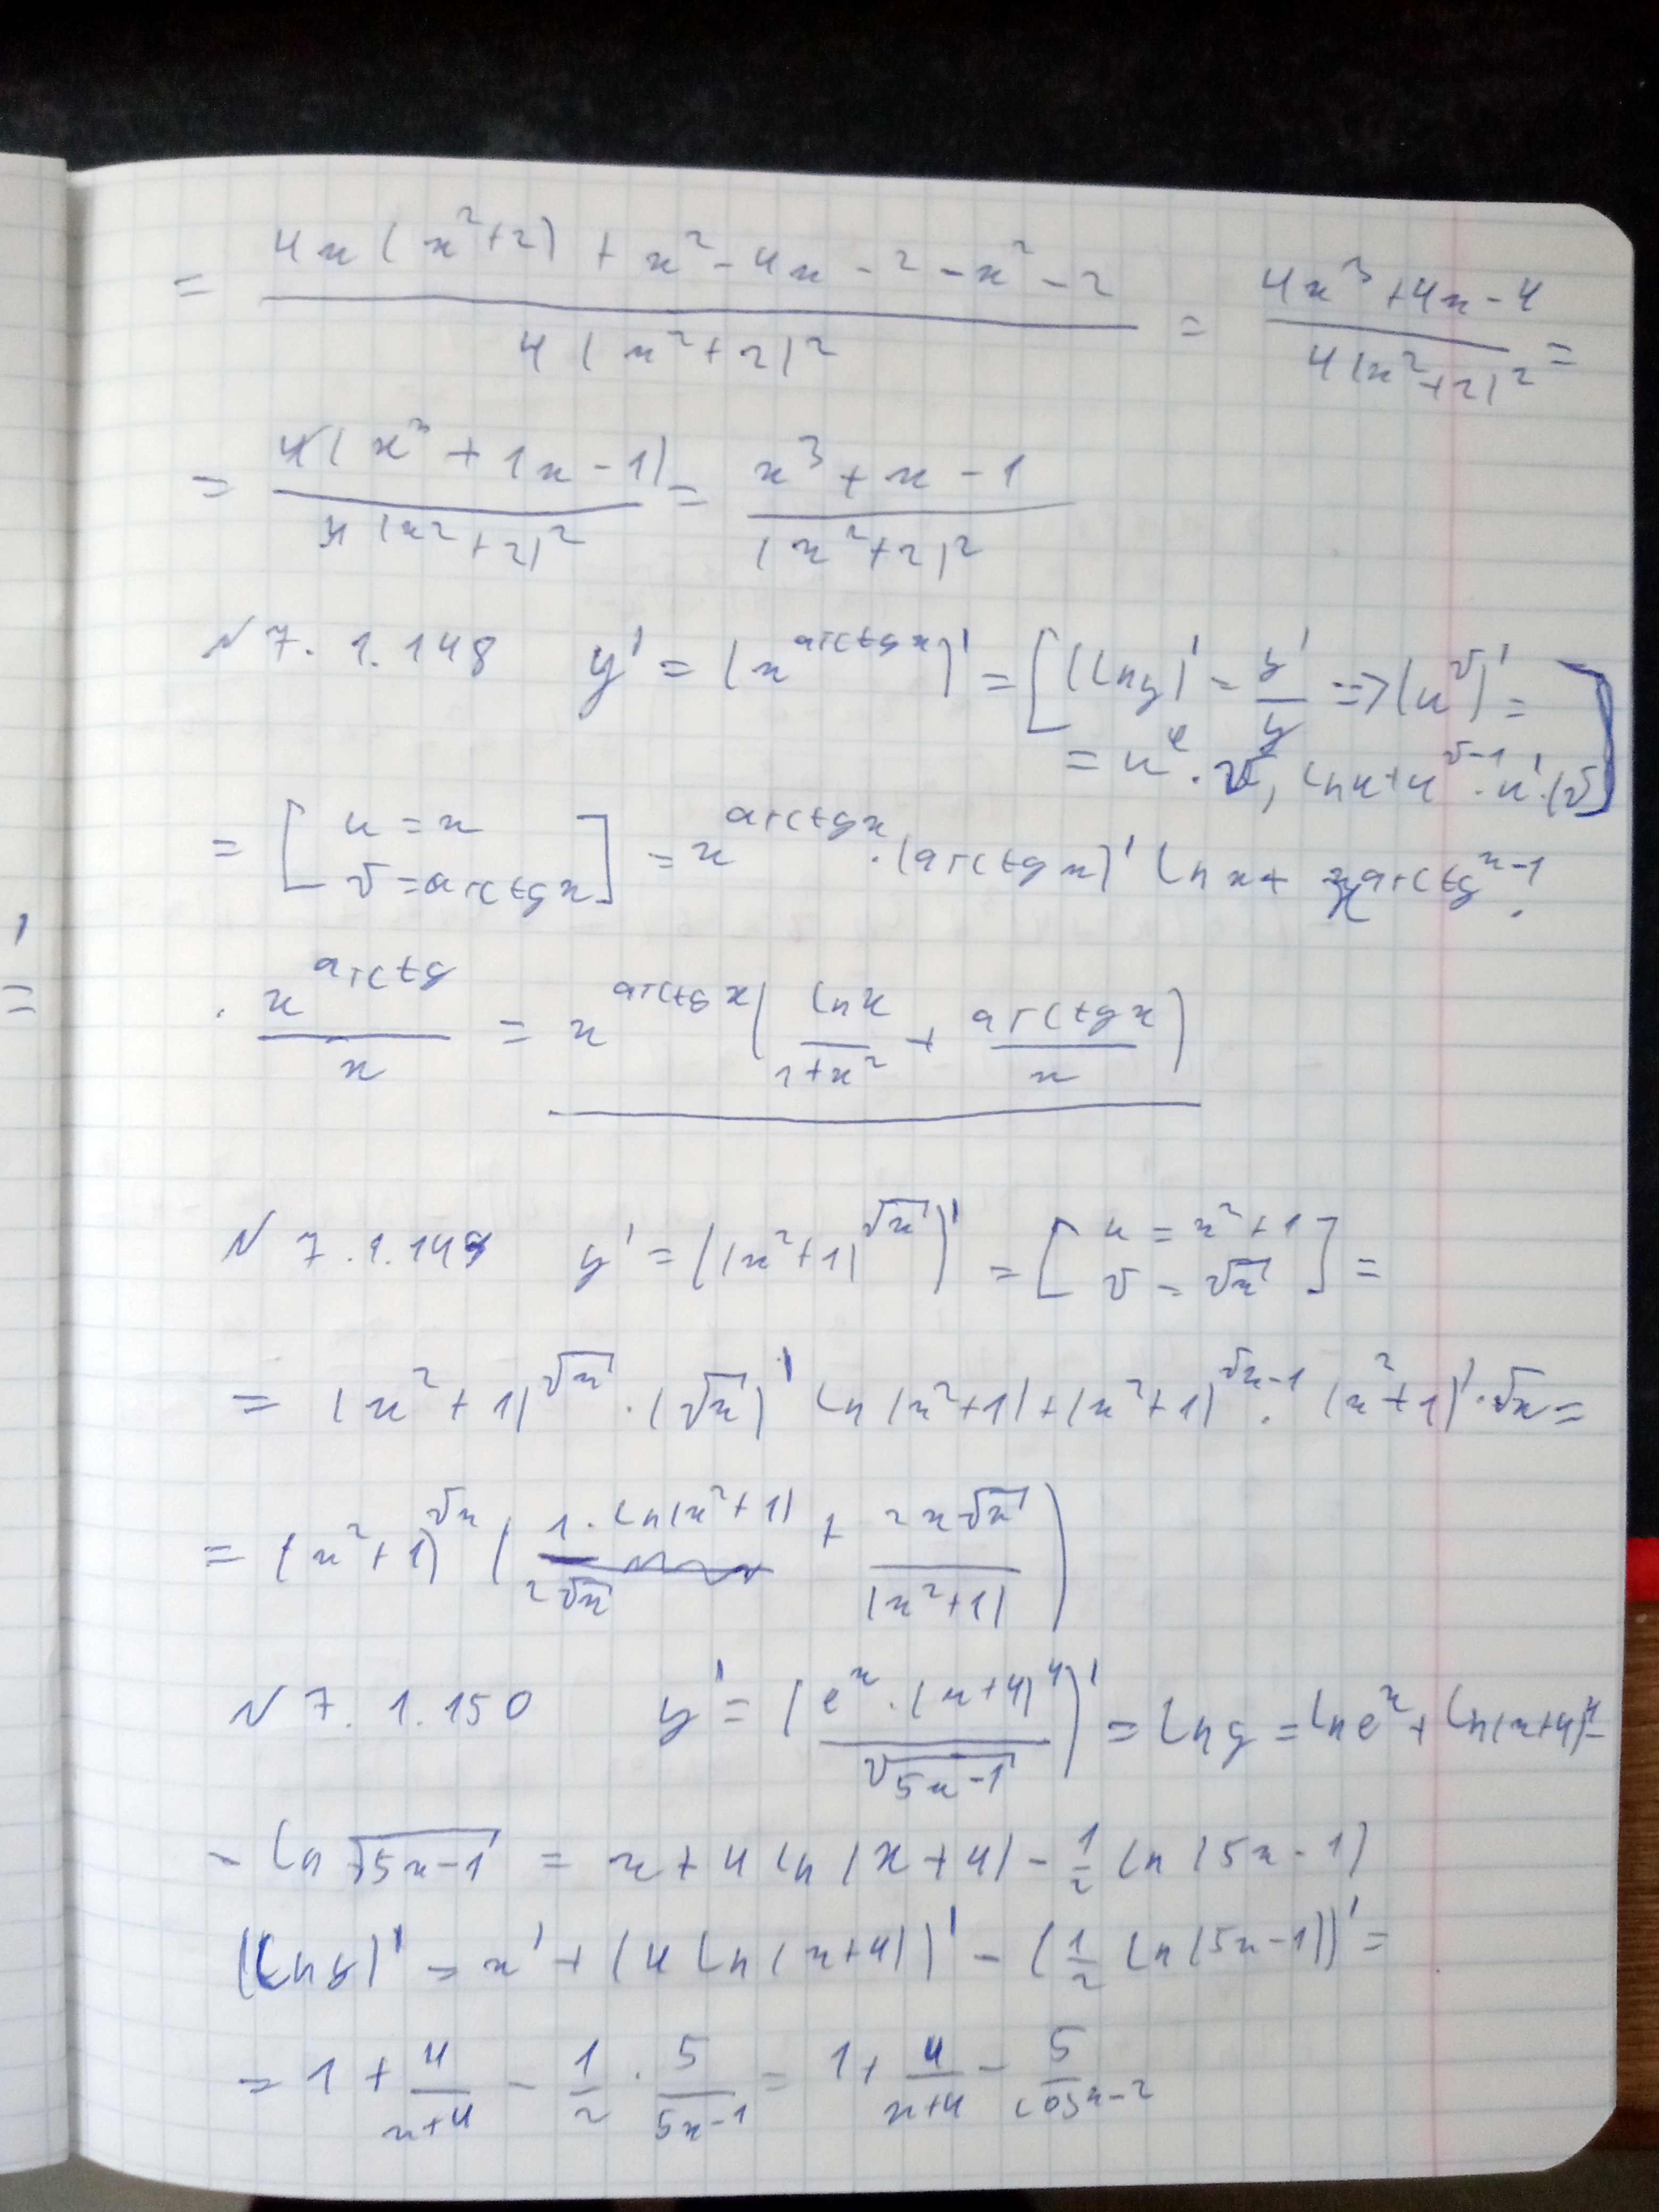 = (4x(x²+2) + x² - 4x - 2 - x² - 2) / (4(x²+2)²) = (4x³+4x-4) / (4(x²+2)²) =
= (4(x³ + 1x - 1)) / (4(x²+2)²) = (x³ + x - 1) / (x²+2)²
N 7. 1. 148 y' = (x^(arctg x))' = [(ln y)' = y'/y => (u^v)' =
= u^v · v' ln u + u^(v-1) · u' · (v)]
= [u = x
v = arctg x] = x^(arctg x) · (arctg x)' ln x + x^(arctg x-1) ·
· x^(arctg) / x = x^(arctg x) (ln x / (1+x²) + arctg x / x)
' =
N 7. 1. 149 y' = ((x²+1)^(√x))' = [u = x²+1
v = √x] =
= (x²+1)^(√x) · (√x)' ln(x²+1) + (x²+1)^(√x-1) · (x²+1)' · √x =
= (x²+1)^(√x) (1 · ln(x²+1) / (2√x) + 2x√x / (x²+1))
N 7. 1. 150 y' = (e^x · (x+4)⁴ / √(5x-1))' = ln y = ln e^x + ln(x+4)⁴ -
- ln √(5x-1) = x + 4 ln(x+4) - 1/2 ln(5x-1)
(ln y)' = x' + (4 ln(x+4))' - (1/2 ln(5x-1))' =
= 1 + 4/(x+4) - 1/2 · 5/(5x-1) = 1 + 4/(x+4) -